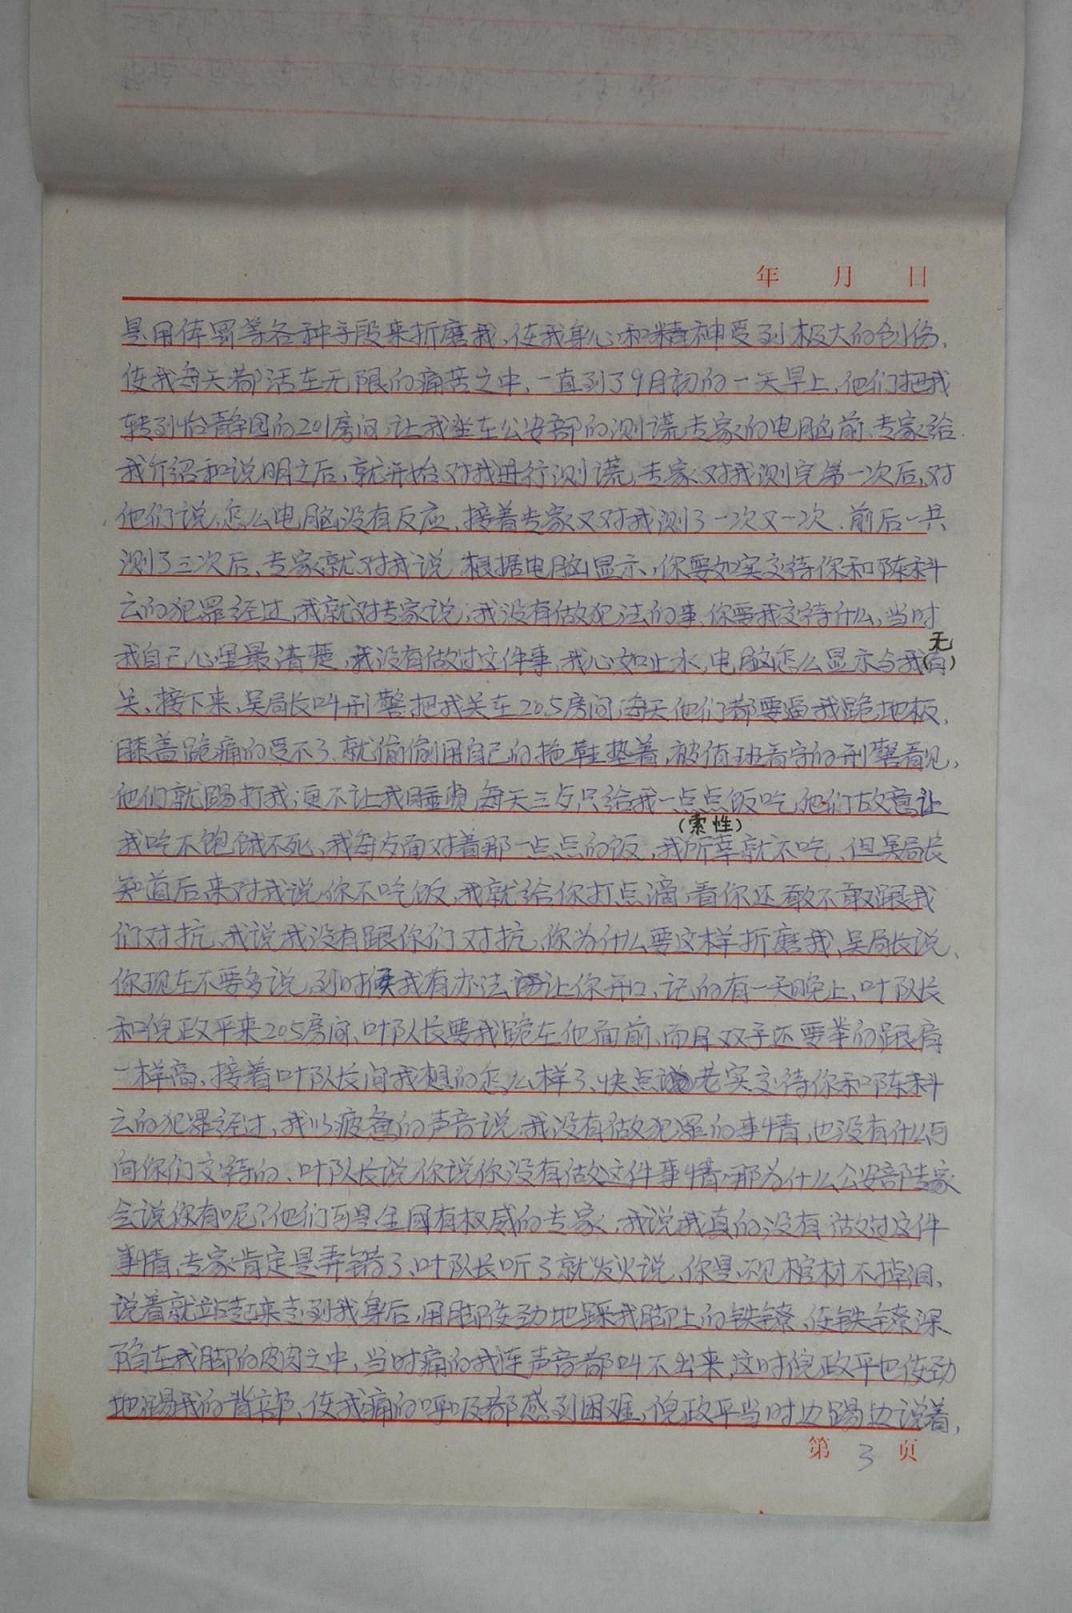 年 月 日
是用体罚等各种手段来折磨我,使我身心和精神受到极大的创伤,
使我每天都活在无限的痛苦之中,一直到了9月初的一天早上,他们把我
转到怡静园的201房间,让我坐在公安部的测谎专家的电脑前,专家给
我介绍和说明之后,就开始对我进行测谎,专家对我测完第一次后,对
他们说,怎么电脑没有反应,接着专家又对我测了一次又一次,前后一共
测了三次后,专家就对我说,根据电脑显示,你要如实交待你和陈科
云的犯罪经过,我就对专家说,我没有做犯法的事,你要我交待什么,当时
我自己心里最清楚,我没有做过这件事,我心如止水,电脑怎么显示与我有
(无)
关,接下来,吴局长叫刑警把我关在205房间,每天他们都要逼我跪地板,
膝盖跪痛的受不了,就偷偷用自己的拖鞋垫着,被值班看守的刑警看见,
他们就踢打我,更不让我睡觉,每天三歺只给我一点点饭吃,他们故意让
(索性)
我吃不饱饿不死,我每歺面对着那一点点的饭,我所幸就不吃,但吴局长
知道后来对我说,你不吃饭,我就给你打点滴,看你还敢不敢跟我
们对抗,我说我没有跟你们对抗,你为什么要这样折磨我,吴局长说,
你现在不要多说,到时候我有办法让你开口,记的有一天晚上,叶队长
和倪政平来205房间,叶队长要我跪在他面前,而且双手还要举的跟肩
一样高,接着叶队长问我想的怎么样了,快点老实交待你和陈科
云的犯罪经过,我以疲惫的声音说,我没有做犯罪的事情,也没有什么可
向你们交待的,叶队长说,你说你没有做这件事情,那为什么公安部专家
会说你有呢?他们可是全国有权威的专家,我说我真的没有做过这件
事情,专家肯定是弄错了,叶队长听了就发火说,你是不见棺材不掉泪,
说着就站起来走到我身后,用脚使劲地踩我脚上的铁镣,使铁镣深
陷在我脚的皮肉之中,当时痛的我连声音都叫不出来,这时倪政平也使劲
地踢我的背部,使我痛的呼吸都感到困难,倪政平当时边踢边说着,
第 3 页